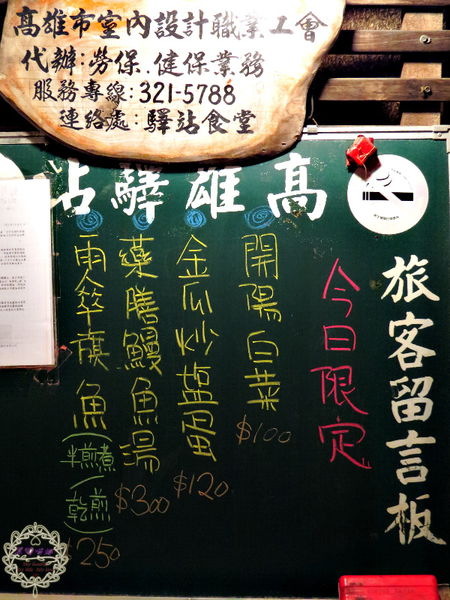 高雄市室內設計職業工會
代辦:勞保.健保業務
服務專線:321-5788
連絡處:驛站食堂
高雄驛站
旅客留言板
今日限定
開陽白菜 $100
金瓜炒塩蛋 $120
藥膳鰻魚湯 $300
雨傘旗魚(半煎煮)(乾煎) $250